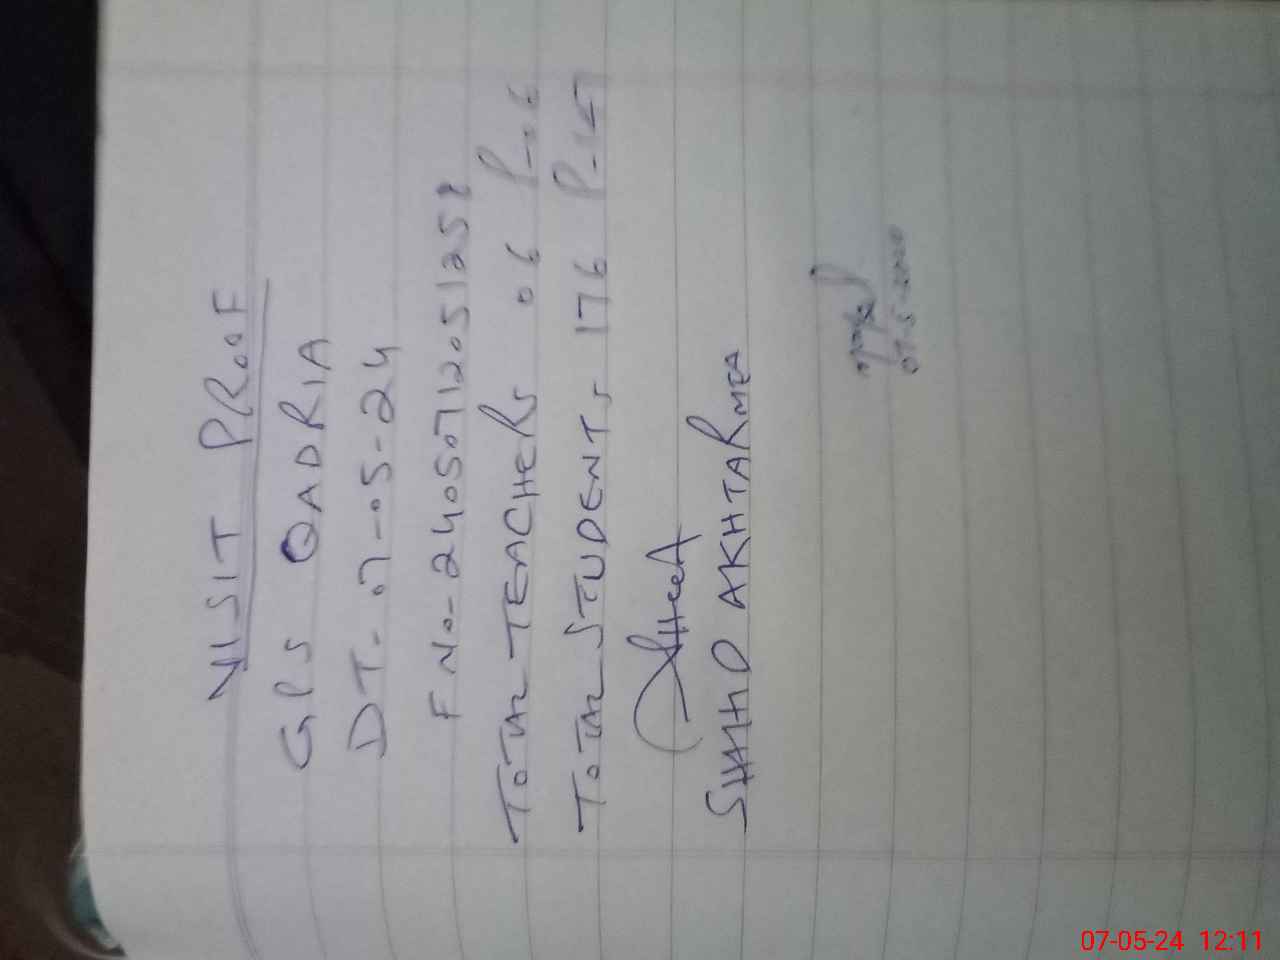 VISIT PROOF
GPS QADRIA
DT-07-05-24
F No-2405071205125
TOTAL TEACHERS 06 P-06
TOTAL STUDENTS 176 P-
SHAHID AKHTAR MEA
07-5-
07-05-24 12:11